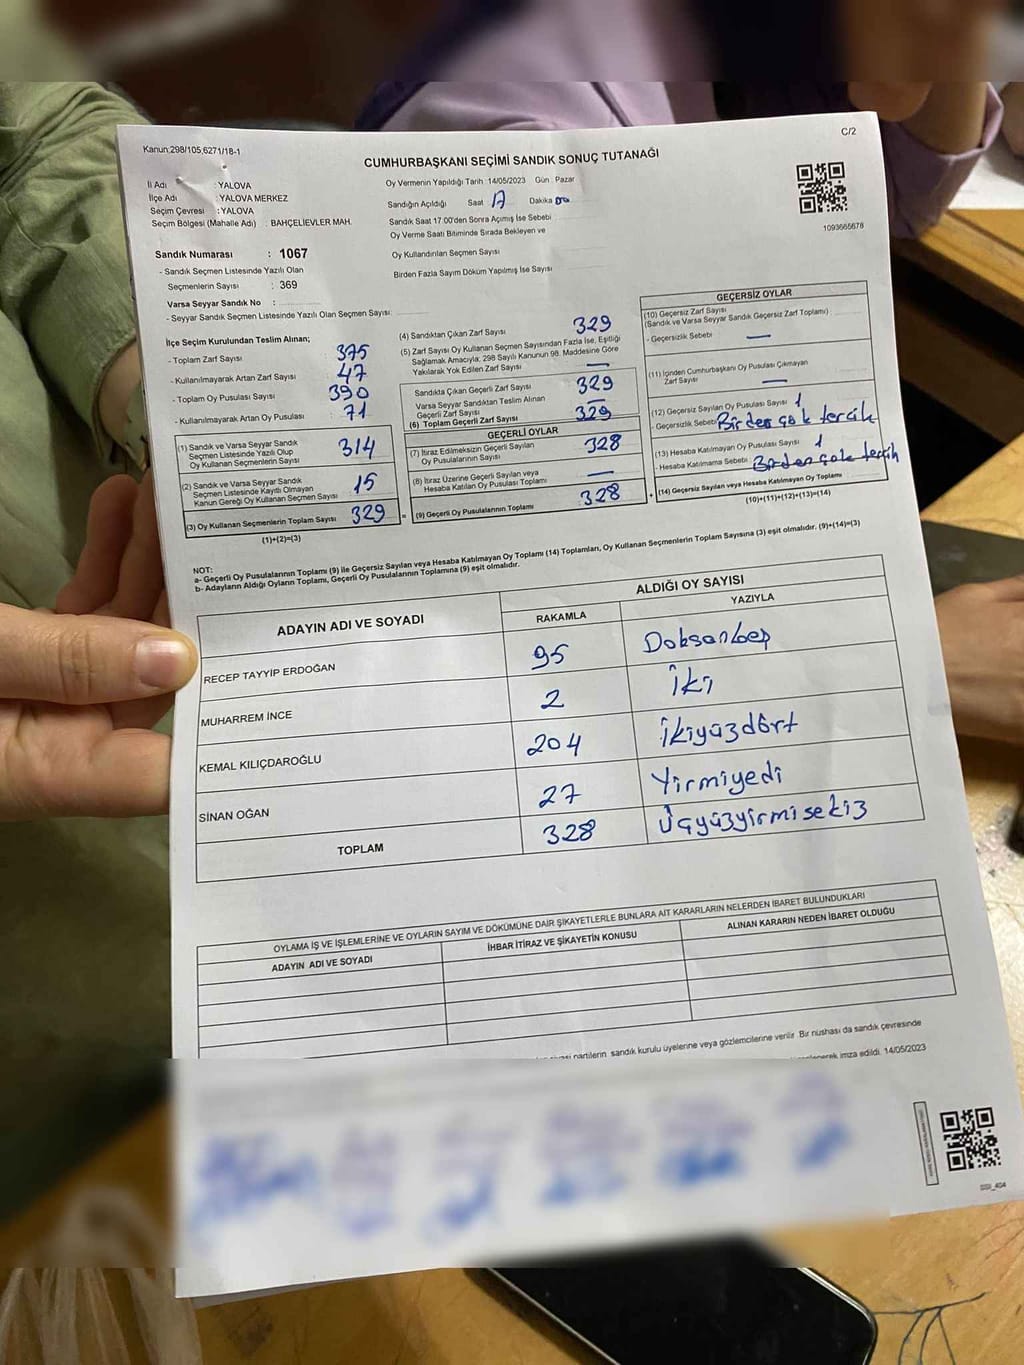 C/2
Kanun;298/105,6271/18-1
CUMHURBAŞKANI SEÇİMİ SANDIK SONUÇ TUTANAĞI
İl Adı : YALOVA
İlçe Adı : YALOVA MERKEZ
Seçim Çevresi : YALOVA
Seçim Bölgesi (Mahalle Adı) : BAHÇELİEVLER MAH.
Oy Vermenin Yapıldığı Tarih :14/05/2023 Gün : Pazar
Sandığın Açıldığı Saat : 17 Dakika
Sandık Saat 17.00'den Sonra Açımış İse Sebebi
Oy Verme Saati Bitiminde Sırada Bekleyen ve
Oy Kullandırılan Seçmen Sayısı
Birden Fazla Sayım Döküm Yapılmış İse Sayısı
1093665678
Sandık Numarası : 1067
- Sandık Seçmen Listesinde Yazılı Olan
Seçmenlerin Sayısı : 369
Varsa Seyyar Sandık No :
- Seyyar Sandık Seçmen Listesinde Yazılı Olan Seçmen Sayısı:
İlçe Seçim Kurulundan Teslim Alınan;
- Toplam Zarf Sayısı 375
- Kullanılmayarak Artan Zarf Sayısı 47
- Toplam Oy Pusulası Sayısı 390
- Kullanılmayarak Artan Oy Pusulası 71
(1) Sandık ve Varsa Seyyar Sandık
Seçmen Listesinde Yazılı Olup
Oy Kullanan Seçmenlerin Sayısı 314
(2) Sandık ve Varsa Seyyar Sandık
Seçmen Listesinde Kayıtlı Olmayan
Kanun Gereği Oy Kullanan Seçmen Sayısı 15
(3) Oy Kullanan Seçmenlerin Toplam Sayısı 329 =
(1)+(2)=(3)
(4) Sandıktan Çıkan Zarf Sayısı 329
(5) Zarf Sayısı Oy Kullanan Seçmen Sayısından Fazla İse, Eşitliği
Sağlamak Amacıyla; 298 Sayılı Kanunun 98. Maddesine Göre
Yakılarak Yok Edilen Zarf Sayısı —
Sandıkta Çıkan Geçerli Zarf Sayısı 329
Varsa Seyyar Sandıktan Teslim Alınan
Geçerli Zarf Sayısı —
(6) Toplam Geçerli Zarf Sayısı 329
GEÇERLİ OYLAR
(7) İtiraz Edilmeksizin Geçerli Sayılan
Oy Pusulalarının Sayısı 328
(8) İtiraz Üzerine Geçerli Sayılan veya
Hesaba Katılan Oy Pusulası Toplamı —
(9) Geçerli Oy Pusulalarının Toplamı 328 +
GEÇERSİZ OYLAR
(10) Geçersiz Zarf Sayısı
(Sandık ve Varsa Seyyar Sandık Geçersiz Zarf Toplamı)
- Geçersizlik Sebebi —
(11) İçinden Cumhurbaşkanı Oy Pusulası Çıkmayan
Zarf Sayısı —
(12) Geçersiz Sayılan Oy Pusulası Sayısı 1
- Geçersizlik Sebebi Birden çok tercih
(13) Hesaba Katılmayan Oy Pusulası Sayısı 1
- Hesaba Katılmama Sebebi Birden çok tercih
(14) Geçersiz Sayılan veya Hesaba Katılmayan Oy Toplamı
(10)+(11)+(12)+(13)=(14)
NOT:
a- Geçerli Oy Pusulalarının Toplamı (9) ile Geçersiz Sayılan veya Hesaba Katılmayan Oy Toplamı (14) Toplamları, Oy Kullanan Seçmenlerin Toplam Sayısına (3) eşit olmalıdır. (9)+(14)=(3)
b- Adayların Aldığı Oyların Toplamı, Geçerli Oy Pusulalarının Toplamına (9) eşit olmalıdır.
ADAYIN ADI VE SOYADI
ALDIĞI OY SAYISI
RAKAMLA YAZIYLA
RECEP TAYYİP ERDOĞAN 95 Doksanbeş
MUHARREM İNCE 2 İki
KEMAL KILIÇDAROĞLU 204 İkiyüzdört
SİNAN OĞAN 27 Yirmiyedi
TOPLAM 328 Üçyüzyirmisekiz
OYLAMA İŞ VE İŞLEMLERİNE VE OYLARIN SAYIM VE DÖKÜMÜNE DAİR ŞİKAYETLERLE BUNLARA AİT KARARLARIN NELERDEN İBARET BULUNDUKLARI
ADAYIN ADI VE SOYADI İHBAR İTİRAZ VE ŞİKAYETİN KONUSU ALINAN KARARIN NEDEN İBARET OLDUĞU
partilerin sandık kurulu üyelerine veya gözlemcilerine verilir. Bir nüshası da sandık çevresinde
imza edildi. 14/05/2023